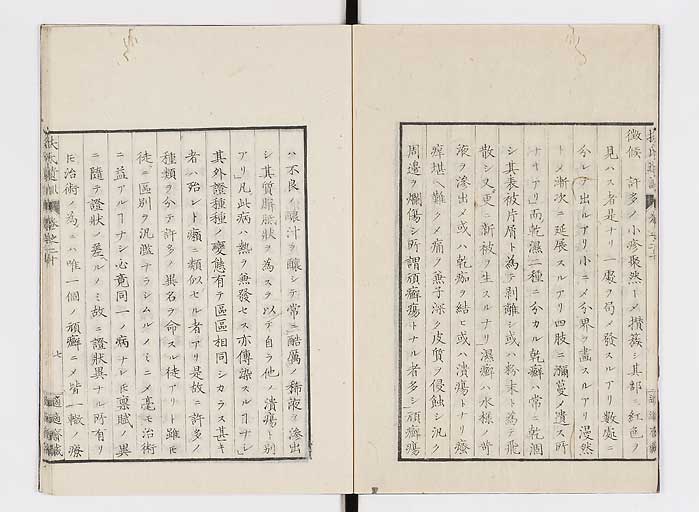 徴候 許多ノ小疹聚然トメ攅簇シ其部ニ紅色ノ
見ハス者是ナリ一處ヲ局メ發スルアリ數處ニ
分レテ出ルアリ小ニメ分界ヲ畫スルアリ漫然
トメ漸次ニ延展スルアリ四肢ニ瀰蔓メ遺ス所
ナキアリ而乾濕二種ニ分カル乾癬ハ常ニ乾涸
シ其表被片屑ト為テ剥離シ或ハ粉末ト為テ飛
散シ又更ニ新被ヲ生スルナリ濕癬ハ水様ノ苛
液ヲ滲出メ或ハ乾痂ヲ結ヒ或ハ潰瘍トナリ瘙
痒堪ヘ難クメ痛ヲ兼子深ク皮質ヲ侵蝕シ汎ク
周邉ヲ爛傷シ所謂頑癬瘍トナル者多シ頑癬瘍
ハ不良ノ釀汁ヲ釀シテ常ニ酷厲ノ稀液ヲ滲出
シ其質脂胝狀ヲ為スヲ以テ自ラ他ノ潰瘍ト別
アリ凡此病ハ熱ヲ兼發セス亦傳染スルヿナシ
其外證種種ノ變態有テ區區相同シカラス甚キ
者ハ殆レト癩ニ類似セル者アリ是故ニ許多ノ
種類ヲ分テ許多ノ異名ヲ命スル徒アリト雖モ
徒ニ區別ヲ汎濫ナラシムルノミニメ毫モ治術
ニ益アルヿナシ必竟同一ノ病ナレ𪜈禀賦ノ異
ニ隨テ證狀ノ差アルノミ故ニ證狀異ナル所有リ
𪜈治術ノ為ニハ唯一個ノ頑癬ニメ皆一轍ノ療
扶氏遺訓 卷之二十 七 適適齋藏